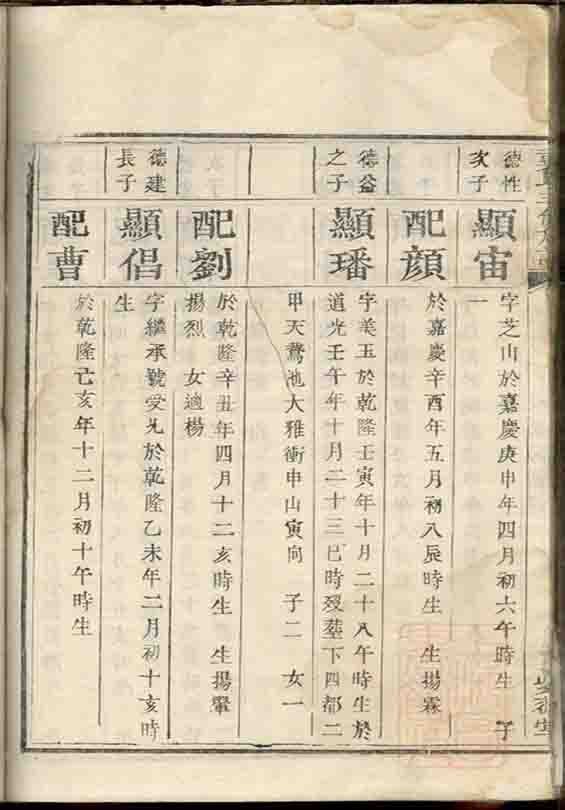 德性
次子
顯宙
字芝山於嘉慶庚申年四月初六午時生 子
一
配顔
於嘉慶辛酉年五月初八辰時生 生揚霖
德益
之子
顯璠
字美玉於乾隆壬寅年十月二十八午時生於
道光壬午年十月二十三巳時歿塟下四都二
甲天鵞池大雅衝申山寅向 子二 女一
配劉
於乾隆辛丑年四月十二亥時生 生揚鞏
揚烈 女適楊
德建
長子
顯倡
字繼承號受兄於乾隆乙未年二月初十亥時
生
配曹
於乾隆己亥年十二月初十午時生